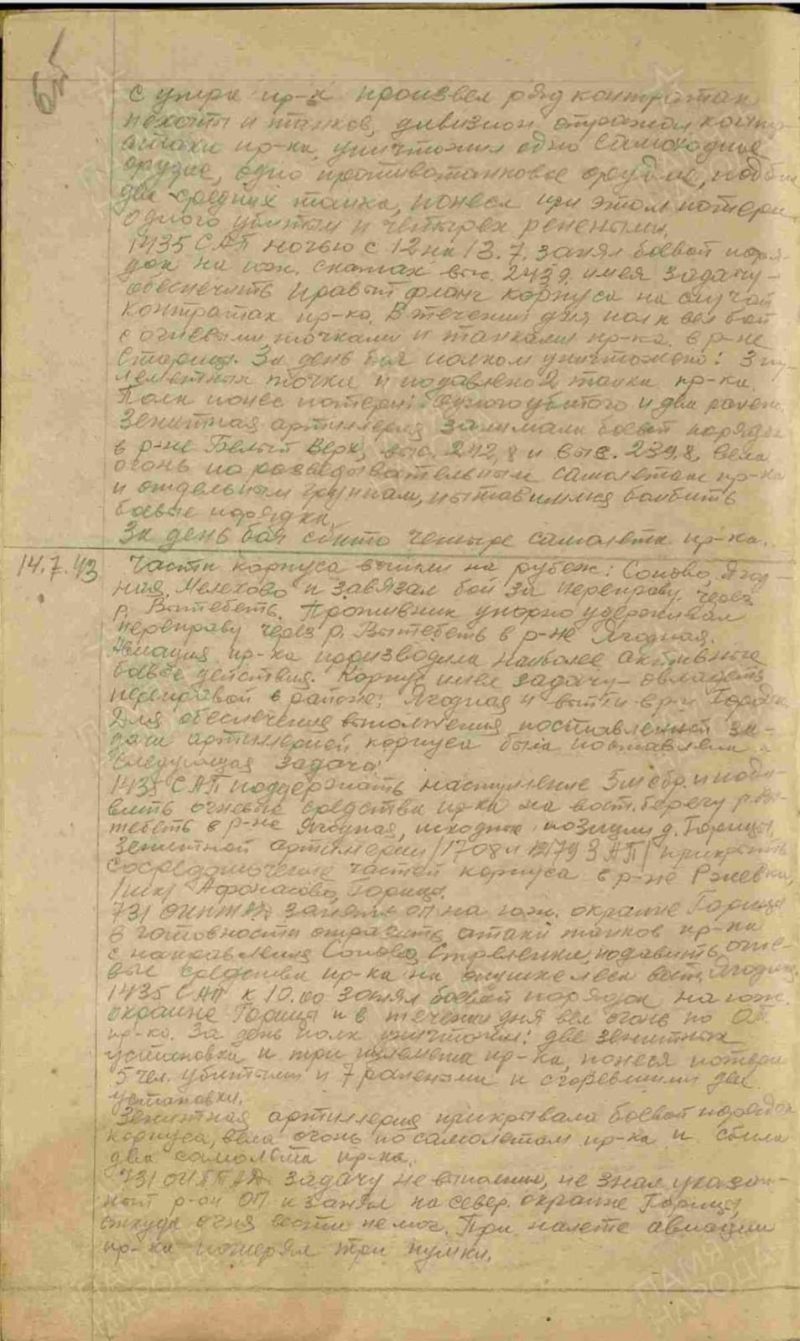 с утра пр-к произвел ряд контратак
пехоты и танков, дивизион отражал контр
атаки пр-ка, уничтожил одно самоходное
орудие, одно противотанковое орудие, подбил
два средних танка, понеся при этом потери
одного убитым и четырех ранеными.
1435 САП ночью с 12 на 13.7. занял боевой поря-
док на юж. скатах выс. 243,9 имея задачу-
обеспечить правый фланг корпуса на случай
контратак пр-ка. В течении дня полк вел бой
с огневыми точками и танками пр-ка в р-не
Старица. За день боя полком уничтожено: 3 пу-
леметных точки и подавлено 2 танка пр-ка.
Полк понес потери: одного убитого и два ранен.
Зенитная артиллерия занимала боевой порядок
в р-не Белый Верх, выс. 242,8 и выс. 239,8, вела
огонь по разведывательным самолетам пр-ка
и отдельным группам, пытавшимся бомбить
боевые порядки.
За день боя сбито четыре самолета пр-ка.
14.7.43 Части корпуса вышли на рубеж: Сопово, Ягод-
ная, Мелехово и завязал бой за переправу через
р. Вытебеть. Противник упорно удерживал
переправу через р. Вытебеть в р-не Ягодная.
Авиация пр-ка производила наиболее активные
боевые действия. Корпус имел задачу- овладеть
переправой в районе: Ягодная и выйти в р-н
Для обеспечения выполнения поставленной за-
дачи артиллерией корпуса была поставлена
следующая задача:
1435 САП поддержать наступление 5 мсбр. и пода-
вить огневые средства пр-ка на вост. берегу р. Вы-
тебеть в р-не Ягодная, исходные позиции д. Горицы.
Зенитной артиллерии /1708 и 1179 ЗАП/ прикрыть
сосредоточение частей корпуса в р-не Ржевка,
/иск/ Афонасово, Горицы.
731 ОИПТАД занять ОП на юж. окраине Горицы
в готовности отразить атаки танков пр-ка
с направления Сопово, Стрелики, подавить огне-
вые средства пр-ка на опушке леса вост. Ягодная.
1435 САП к 10.00 занял боевой порядок на юж.
окраине Горица и в течении дня вел огонь по ОТ
пр-ка. За день полк уничтожил: две зенитных
установки и три пулемета пр-ка, понеся потери
5 чел. убитыми и 7 ранеными и сгоревшими две
установки.
Зенитная артиллерия прикрывала боевой порядок
корпуса, вела огонь по самолетам пр-ка и сбила
два самолета пр-ка.
731 ОИПТАД задачу не выполнил, не зная указан-
ный р-он ОП и занял на север. окраине Горицы,
откуда огня вести не мог. При налете авиации
пр-ка потерял три пушки.
ПАМЯТЬ
НАРОДА